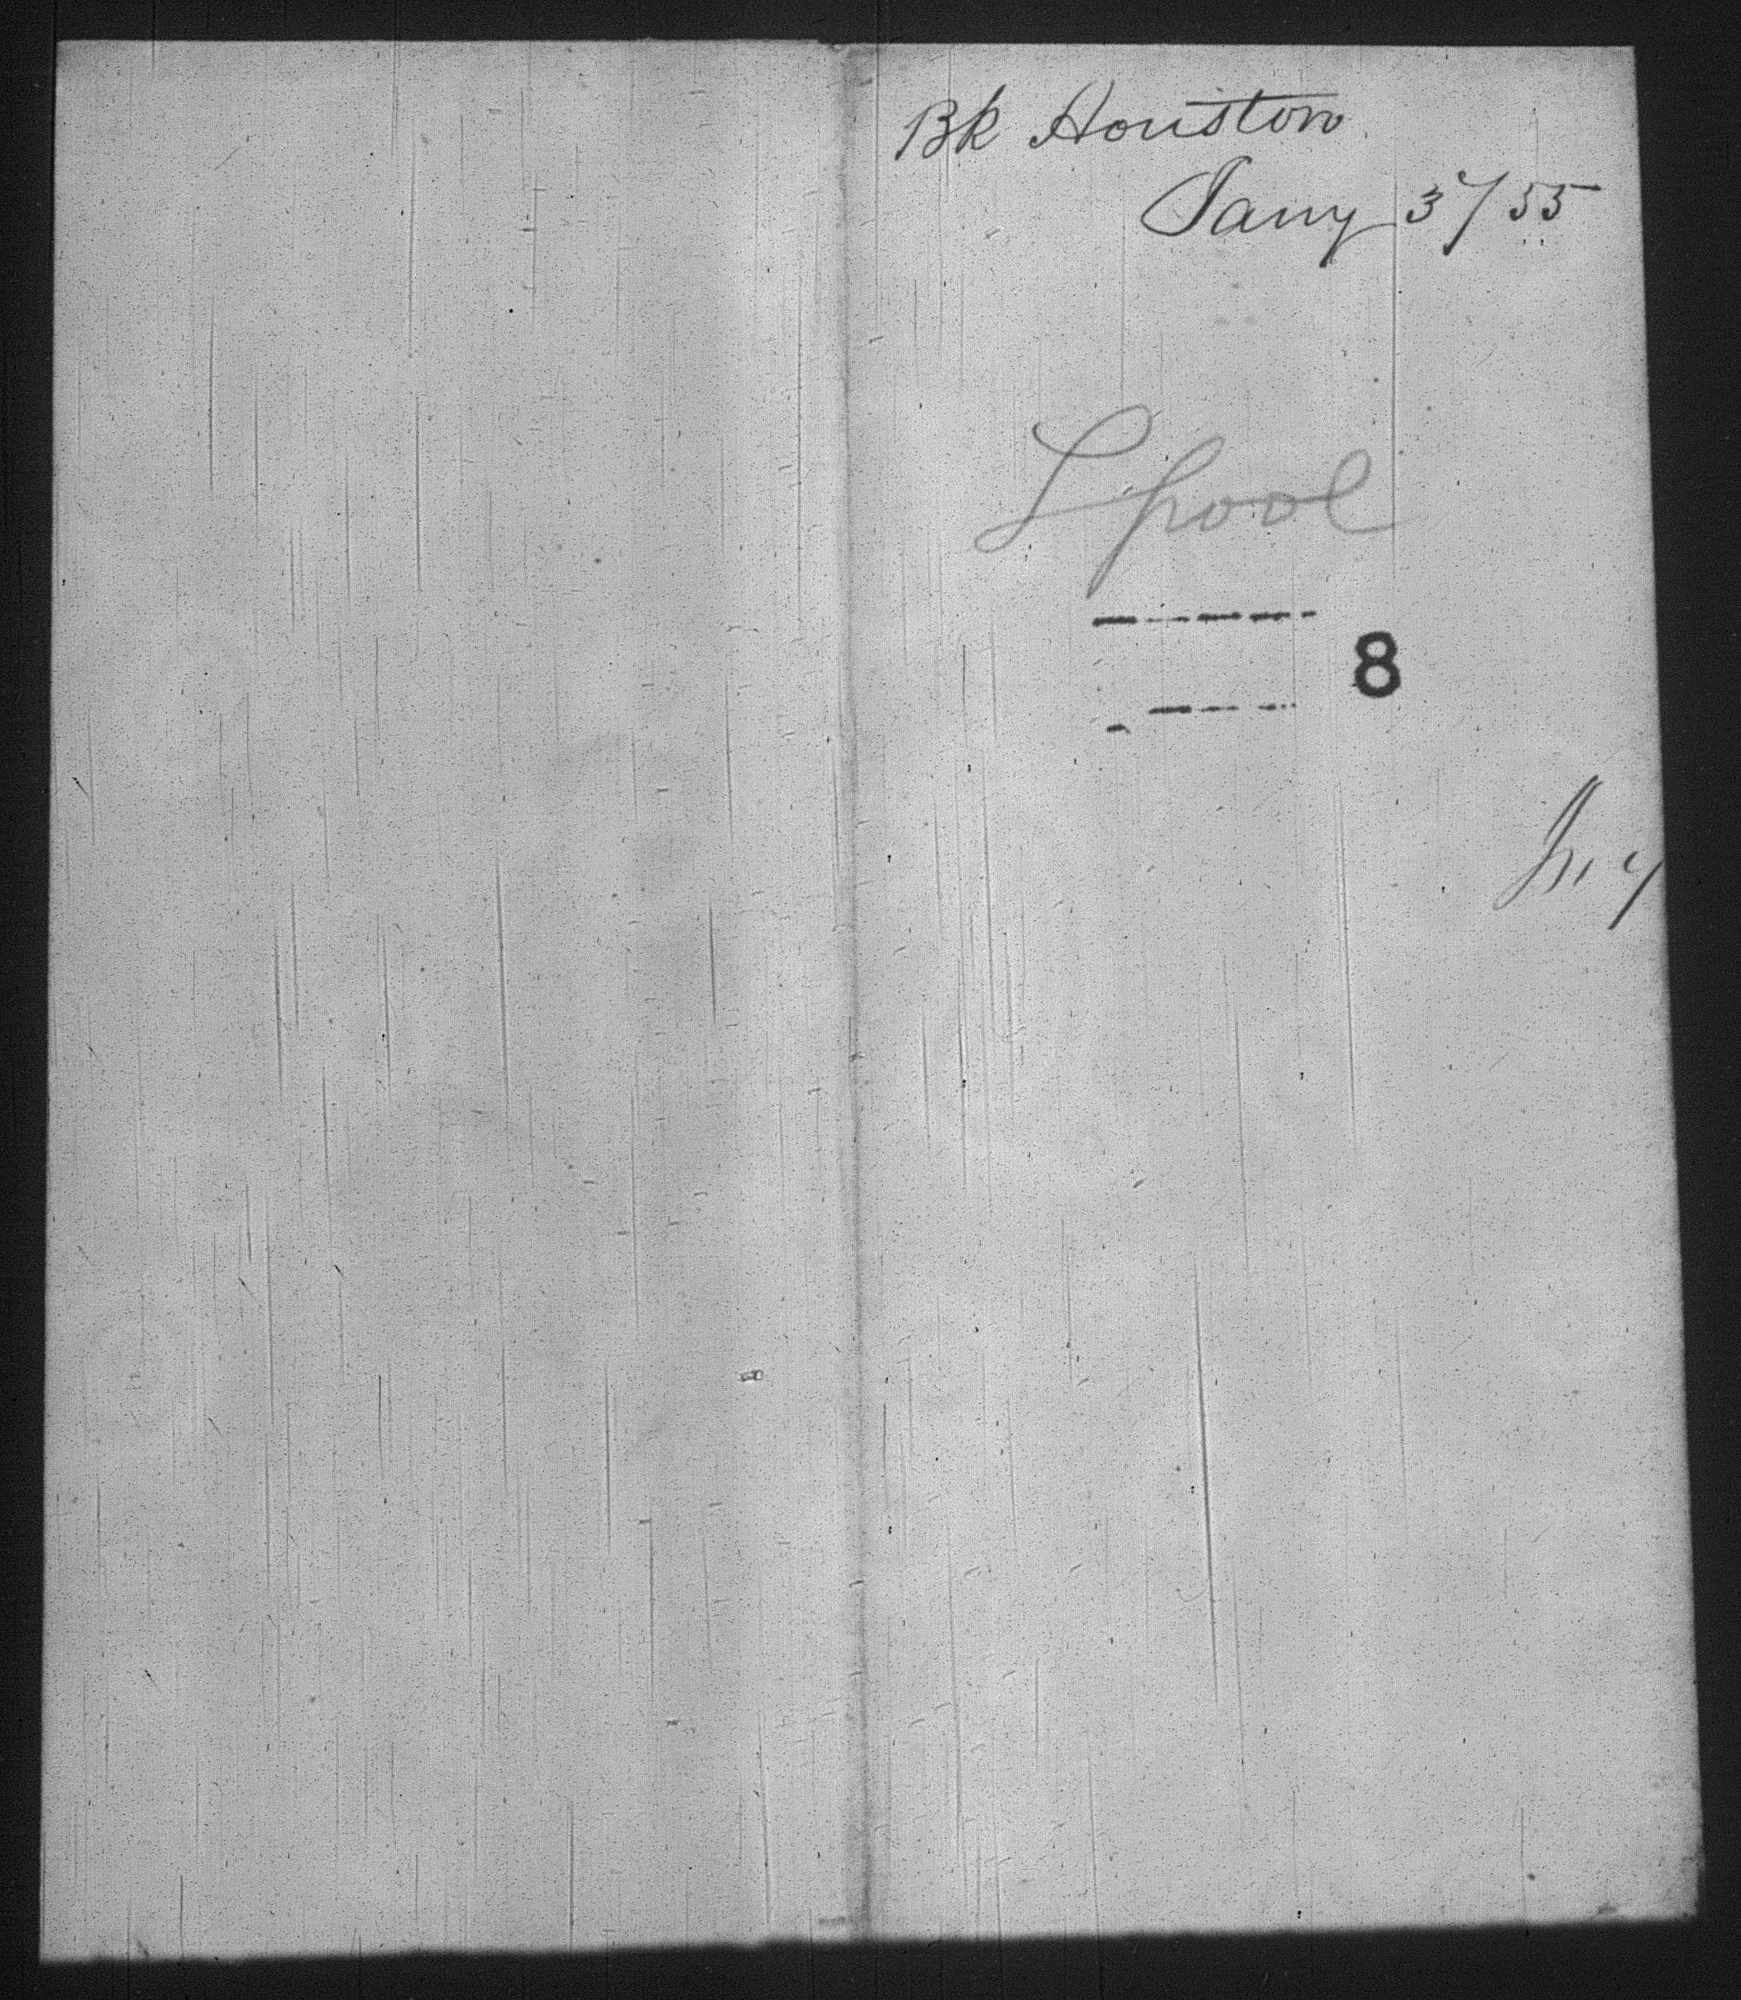 Bk Houston
Jany 3/55
Lpool
8